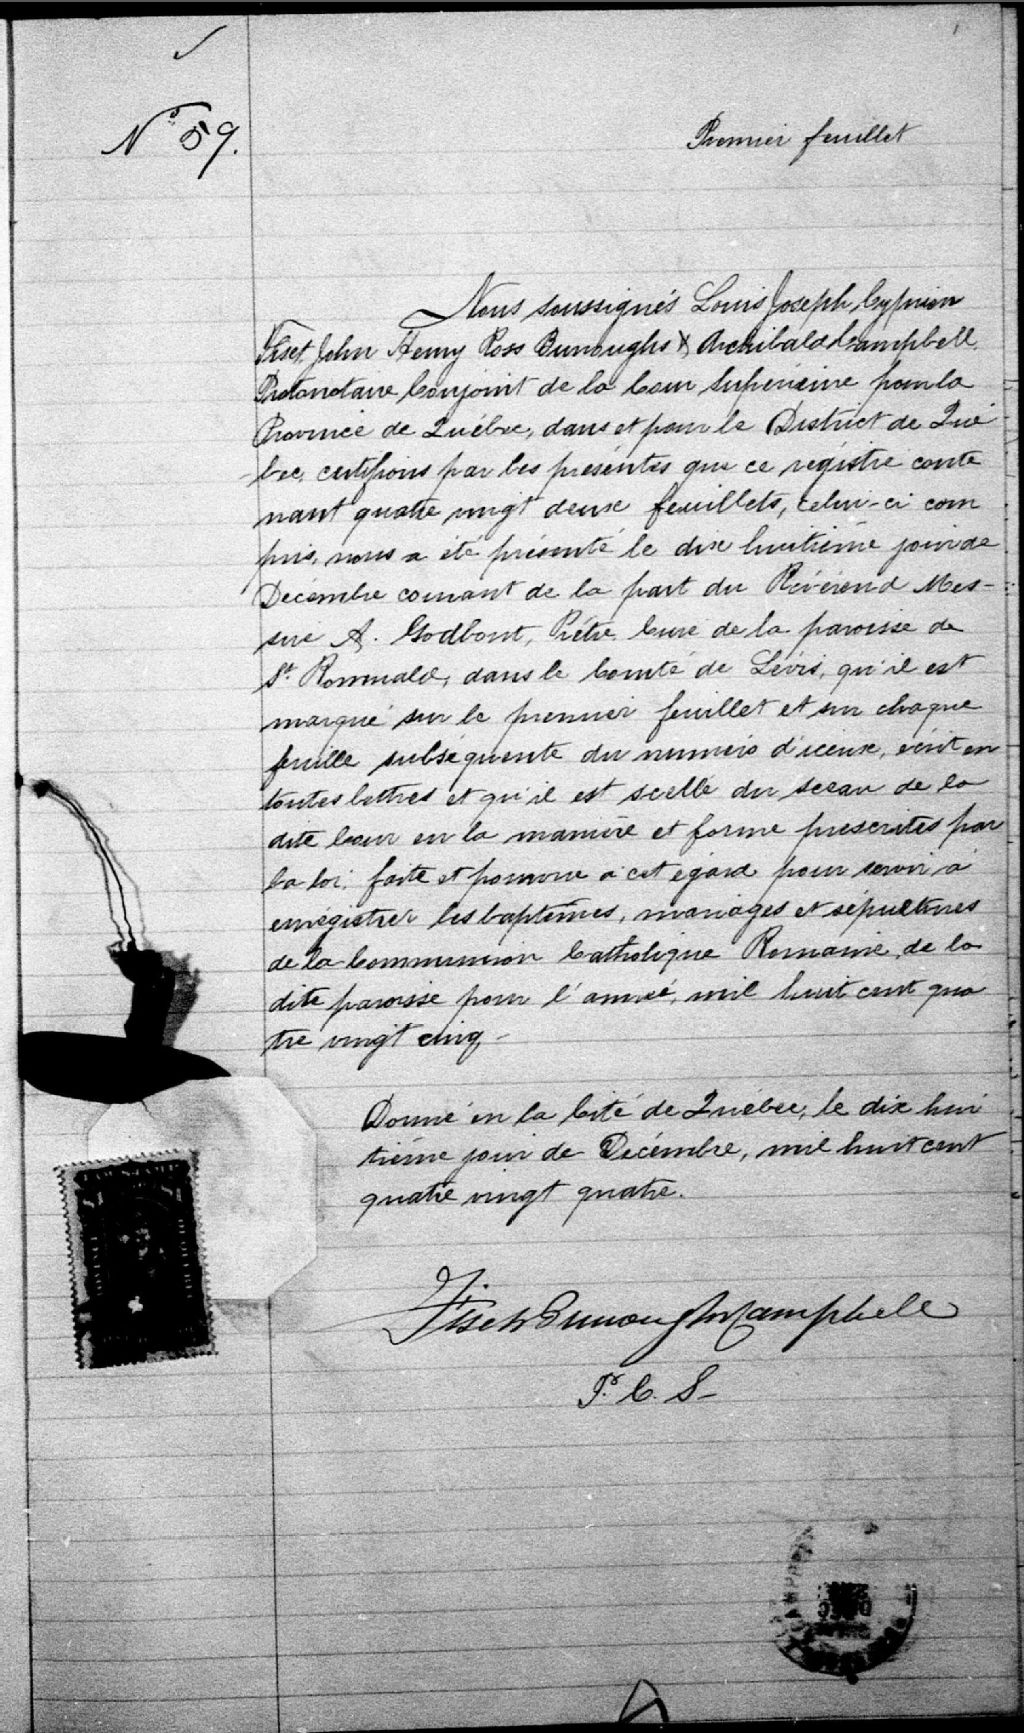 No 59.
Premier feuillet
Nous soussignés Louis Joseph Cyprien
Fiset, John Henry Ross Burroughs & Archibald Campbell
Protonotaire Conjoint de la Cour Supérieure pour la
Province de Québec, dans et pour le District de Qué
bec, certifions par les présentes que ce régistre conte
nant quatre vingt deux feuillets, celui-ci com
pris, nous a été présenté le dix huitième jour de
Décembre courant de la part du Révérend Mes-
sire A. Godbout, Prêtre, Curé de la paroisse de
St. Romuald, dans le Comté de Lévis, qu'il est
marqué sur le premier feuillet et sur chaque
feuille subséquente du numéro d'iceux, écrit en
toutes lettres et qu'il est scellé du sceau de la
dite Cour en la manière et forme prescrites par
la loi, faite et pourvue à cet égard pour servir à
enrégistrer les baptêmes, mariages et sépultures
de la Communion Catholique Romaine, de la
dite paroisse pour l'année, mil huit cent qua
tre vingt cinq -
Donné en la Cité de Québec, le dix hui
tième jour de Décembre, mil huit cent
quatre vingt quatre.
Fiset Burroughs Campbell
P. C. S-